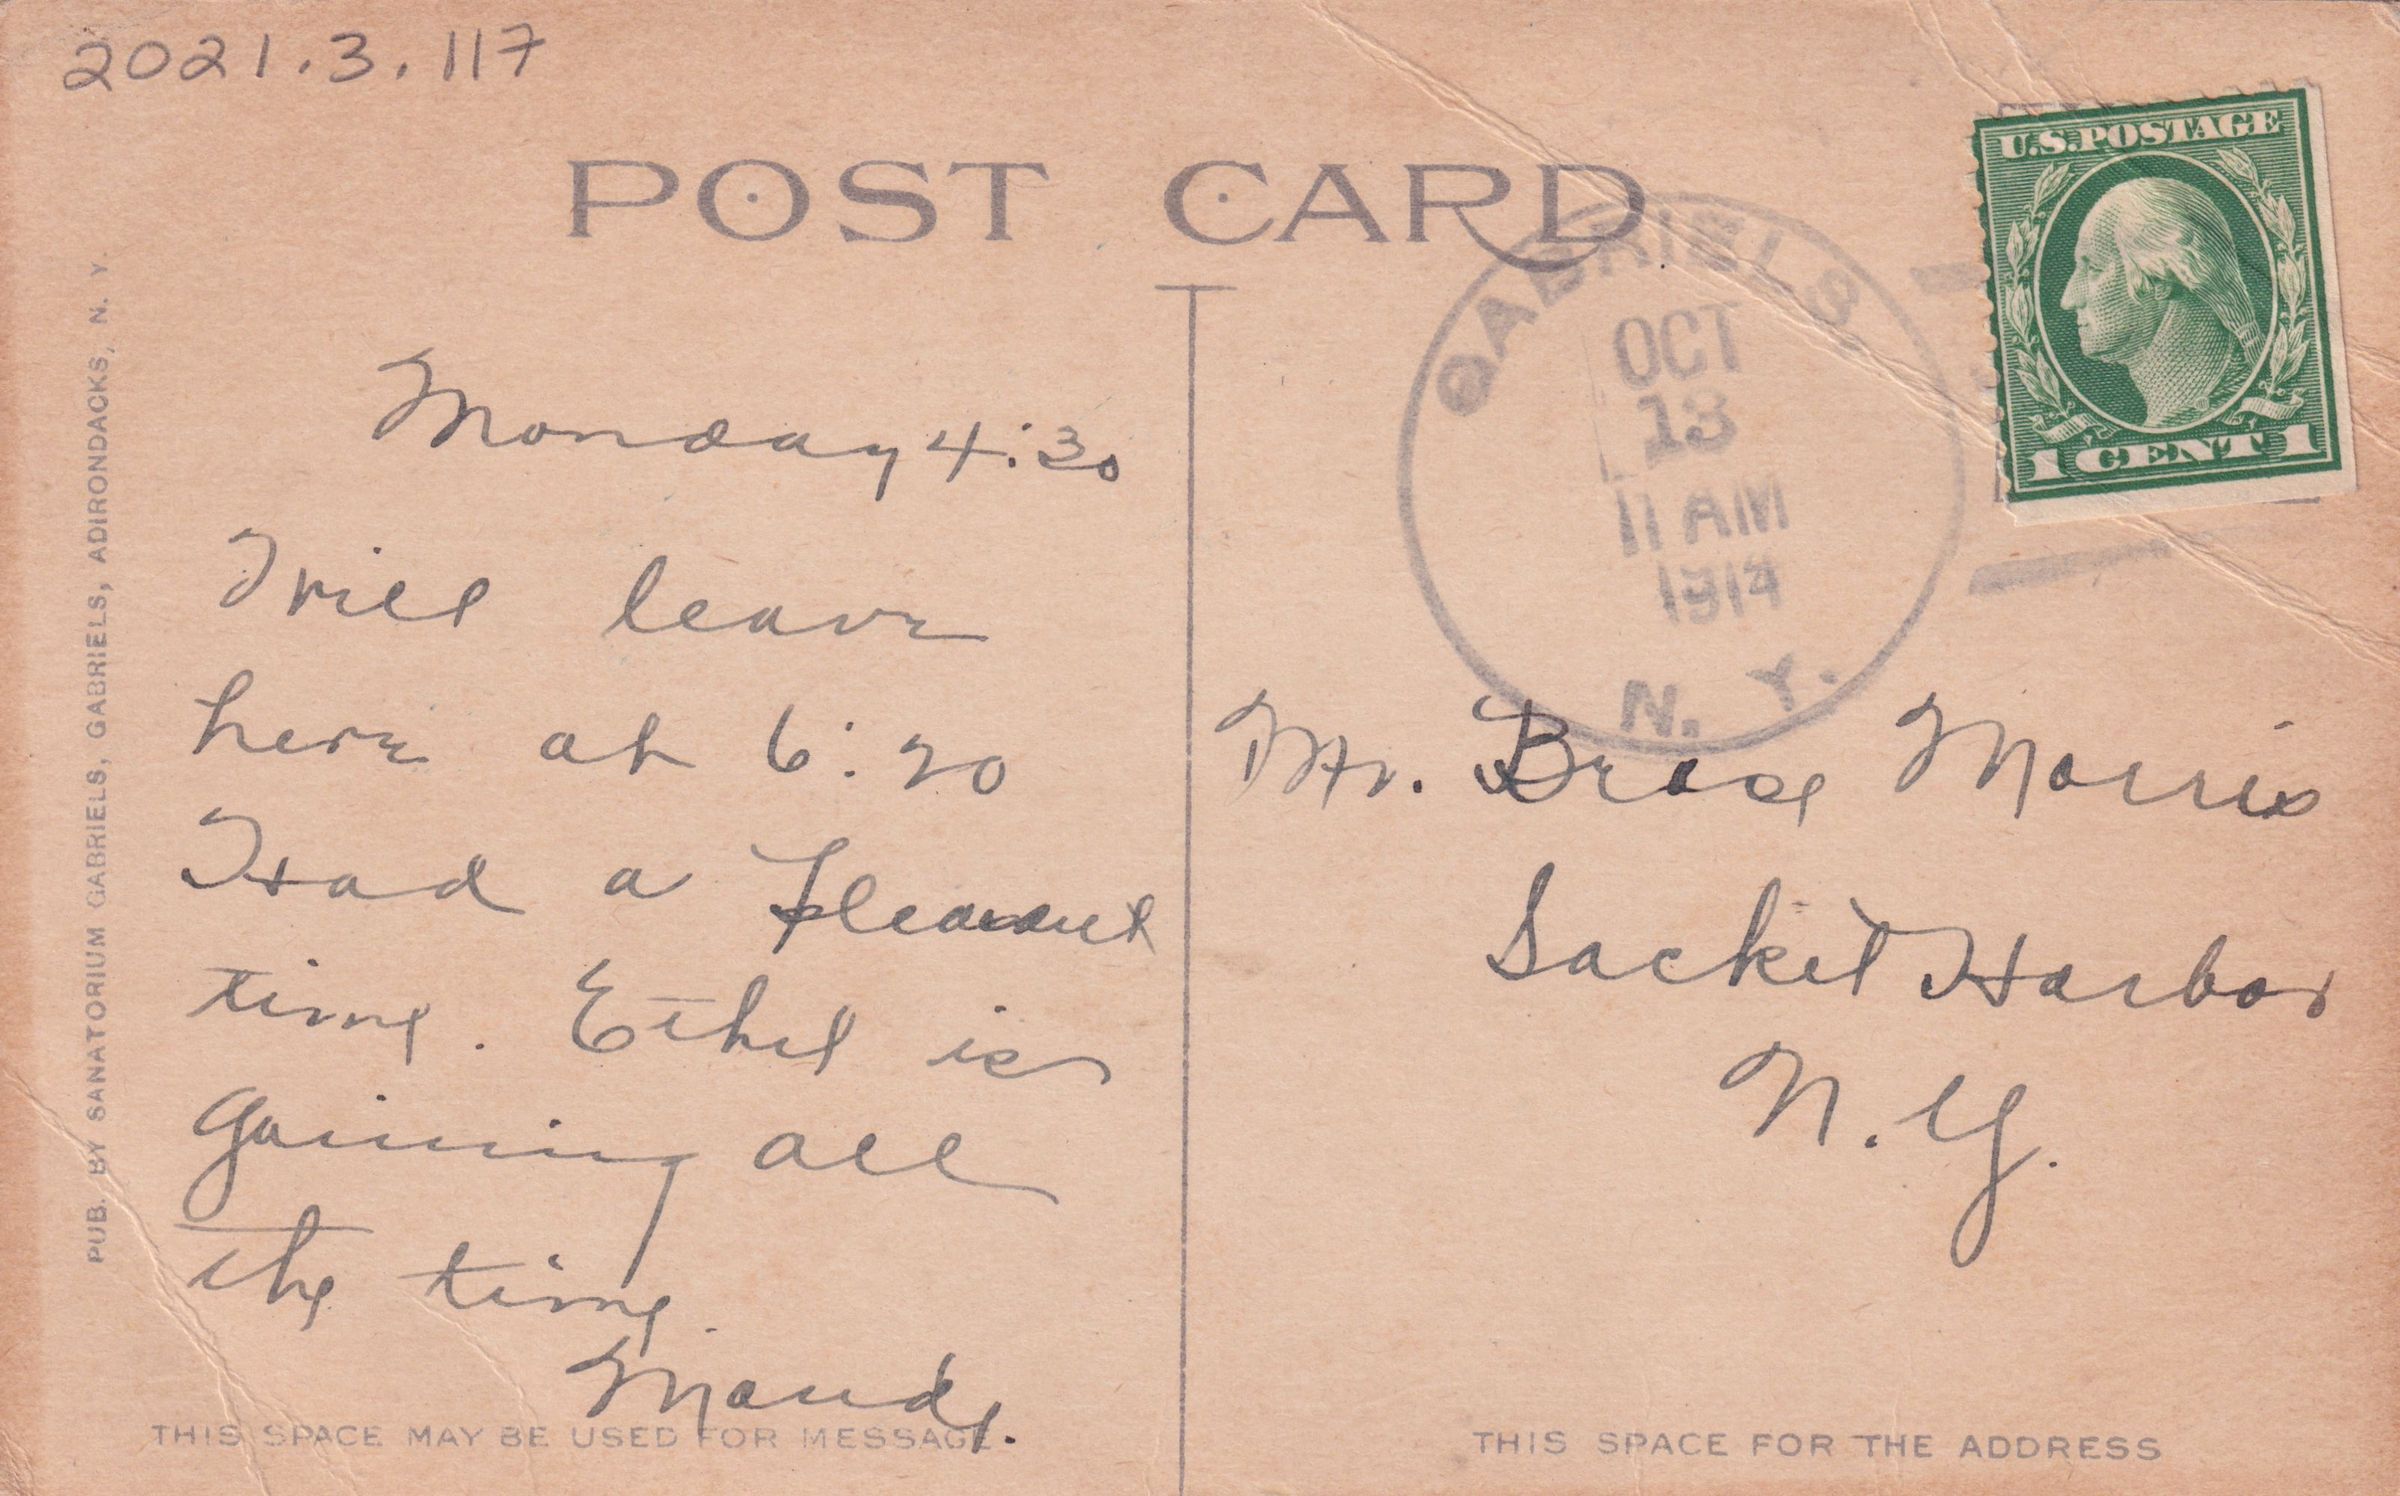 2021.3.117
POST CARD
U.S. POSTAGE
1 CENT 1
GABRIELS
OCT
13
11 AM
1914
N. Y.
PUB. BY SANATORIUM GABRIELS, GABRIELS, ADIRONDACKS, N. Y.
Monday 4:30
Will leave
here at 6:20
Had a pleasant
time. Ethel is
gaining all
the time.
Maude.
Mr. Morris
Sacket Harbor
N.Y.
THIS SPACE MAY BE USED FOR MESSAGE.
THIS SPACE FOR THE ADDRESS